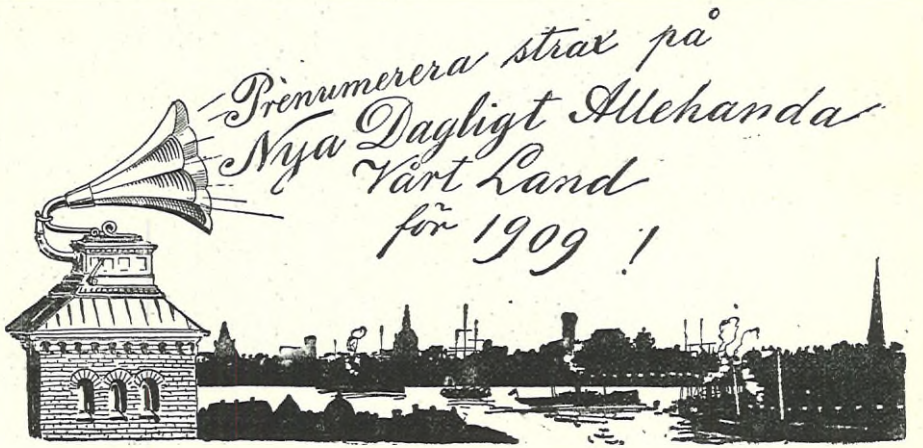 Prenumerera strax på
Nya Dagligt Allehanda
Vårt Land
för 1909 !